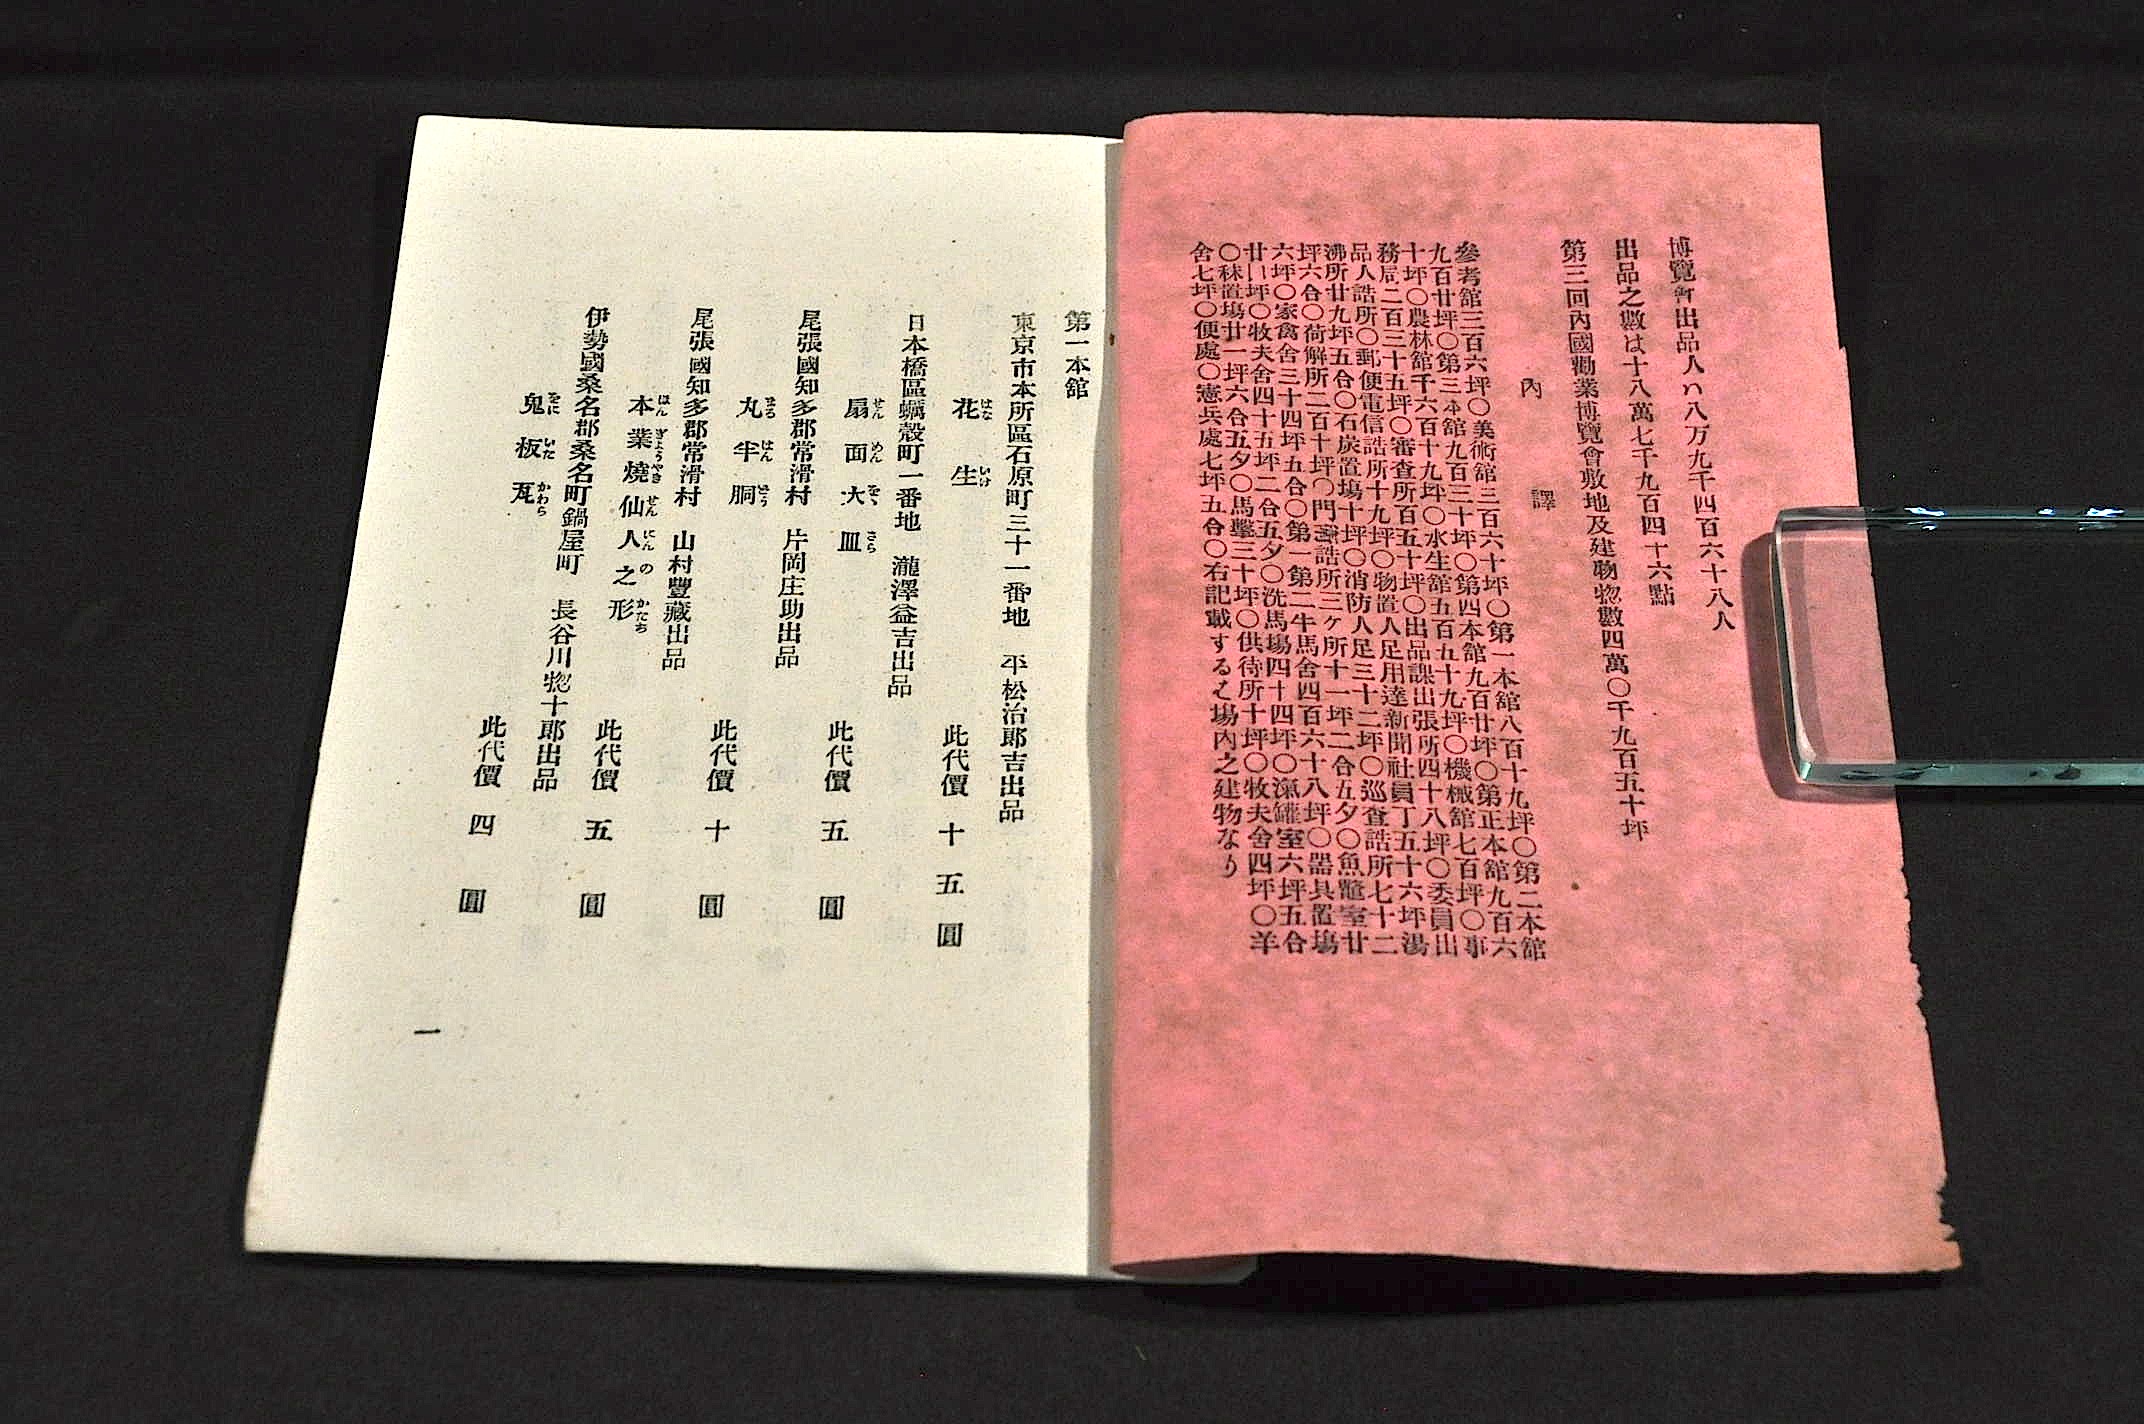 博覽會出品人ハ八万九千四百六十八人
出品之數は十八萬七千九百四十六點
第三回內國勸業博覽會敷地及建物惣數四萬〇千九百五十坪
內譯
參考舘三百六坪〇美術舘三百六十坪〇第一本舘八百十九坪〇第二本舘
九百廿坪〇第三本舘九百三十坪〇第四本舘九百廿坪〇第正本舘九百六
十坪〇農林舘千六百十九坪〇水生舘五百五十九坪〇機械舘七百坪〇事
務局二百三十五坪〇審査所百五十坪〇出品課出張所四十八坪〇委員出
品人詰所〇郵便電信詰所十九坪〇物置人足用達新聞社員丁五十六坪湯
沸所廿九坪五合〇石炭置塲十坪〇消防人足三十二坪〇巡査詰所七十二
坪六合〇荷解所二百十坪〇門衞詰所三ヶ所十一坪二合五夕〇魚鼈室廿
六坪〇家禽舍三十四坪五合〇第一第二牛馬舍四百六十八坪〇器具置塲
廿八坪〇牧夫舍四十五坪二合五夕〇洗馬場四十四坪〇滊罐室六坪五合
〇秣置塲廿一坪六合五夕〇馬繫三十坪〇供待所十坪〇牧夫舍四坪〇羊
舍七坪〇便處〇憲兵處七坪五合〇右記載するは塲內之建物なり
第一本舘
東京市本所區石原町三十一番地 平松治郎吉出品
花生 はないけ 此代價十五圓
日本橋區蠣殼町一番地 瀧澤益吉出品
扇面大皿 せんめんをゝさら 此代價五圓
尾張國知多郡常滑村 片岡庄助出品
丸半胴 まるはんどう 此代價十圓
尾張國知多郡常滑村 山村豐藏出品
本業燒仙人之形 ほんぎょうやきせんにんのかたち 此代價五圓
伊勢國桑名郡桑名町鍋屋町 長谷川惣十郎出品
鬼板瓦 をにいたかわら 此代價四圓
一